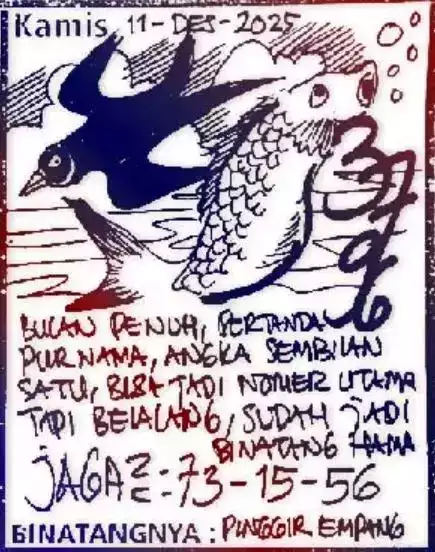 Kamis 11-DES-2025
3796
BULAN PENUH, PERTANDA
PURNAMA, ANGKA SEMBILAN
SATU, BISA JADI NOMER UTAMA
TAPI BELALANG, SUDAH JADI
BINATANG HAMA
JAGA2 : 73-15-56
BINATANGNYA : PINGGIR EMPANG